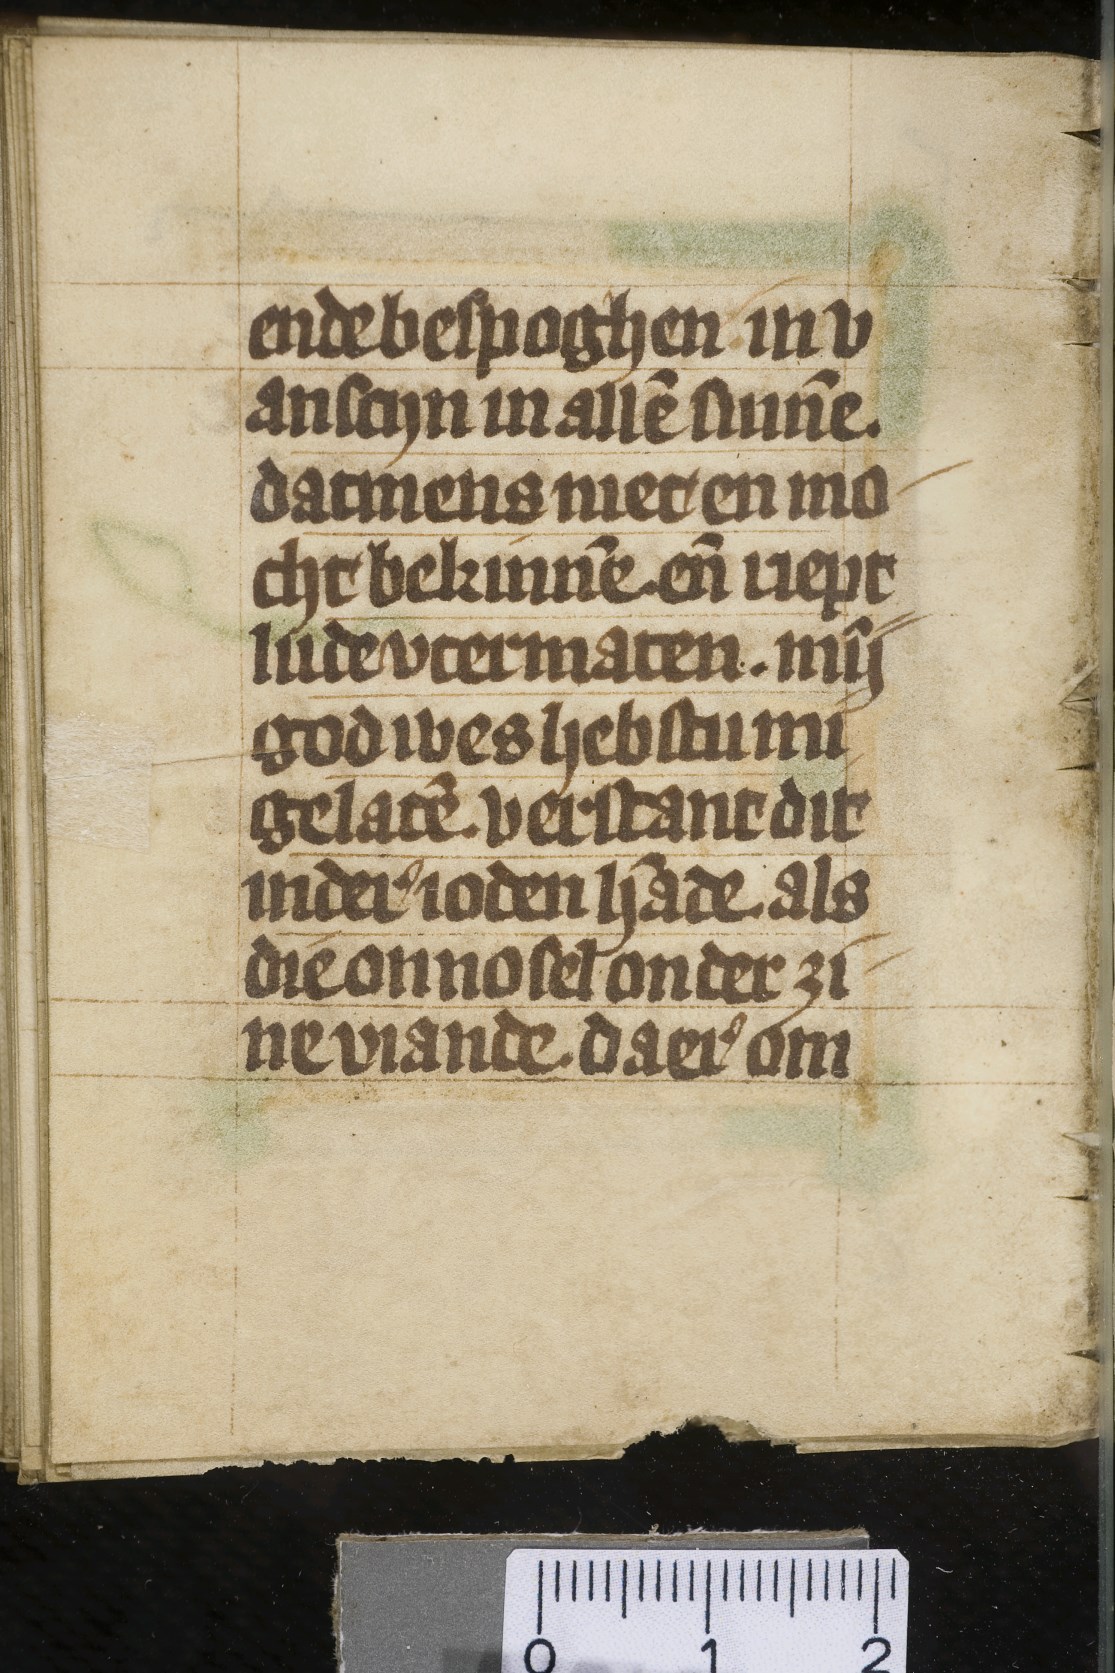 ende bespoghen in v
anscijn in allē sinnē.
datmens niet en mo
cht bekinnē. en̄ riept
lude vtermaten. mij̄
god wes hebstu mi
gelatē. verstant dit
inder ioden hāde. als
die onnosel onder zi
ne viande. daer om
0 1 2